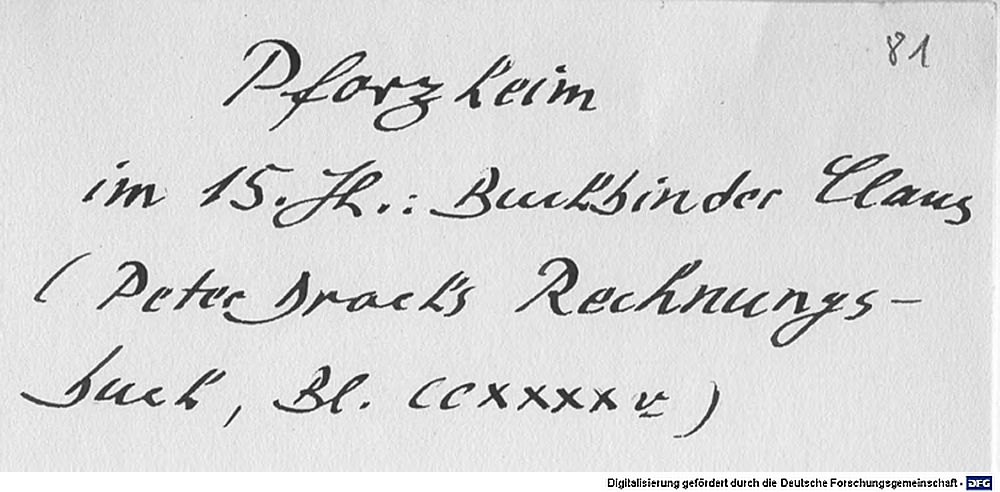 81
Pforzheim
im 15. Jh.: Buchbinder Claus
(Peter Drach's Rechnungs-
buch, Bl. CCXXXXv)
Digitalisierung gefördert durch die Deutsche Forschungsgemeinschaft - DFG